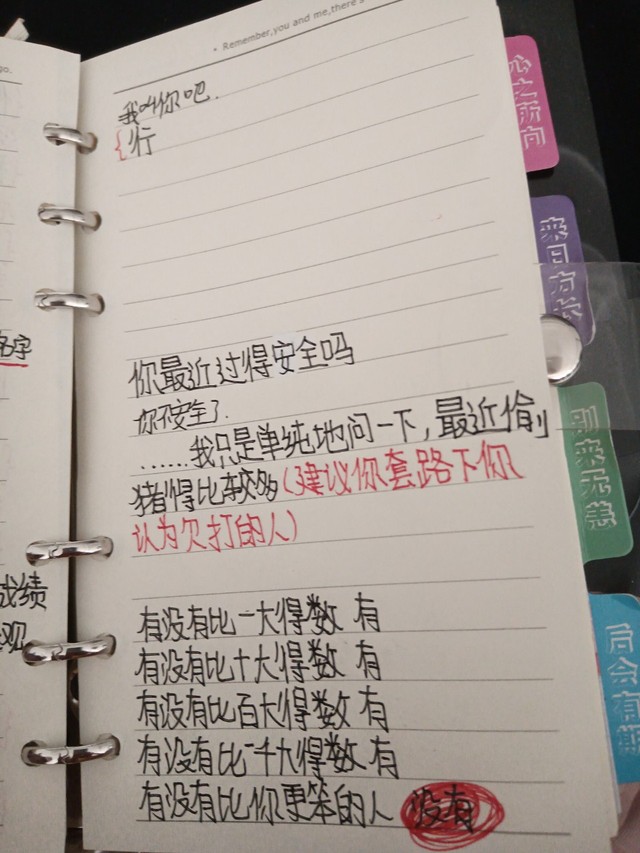 go.
• Remember,you and me,there's
我叫你吧.
{行
你最近过得安全吗
你不安全了.
......我只是单纯地问一下,最近偷
猪得比较多(建议你套路下你
认为欠打的人)
有没有比一大得数 有
有没有比十大得数 有
有没有比百大得数 有
有没有比千大得数 有
有没有比你更笨的人 没有
名字
成绩
观
心之所向
来日方长
别来无恙
后会有期